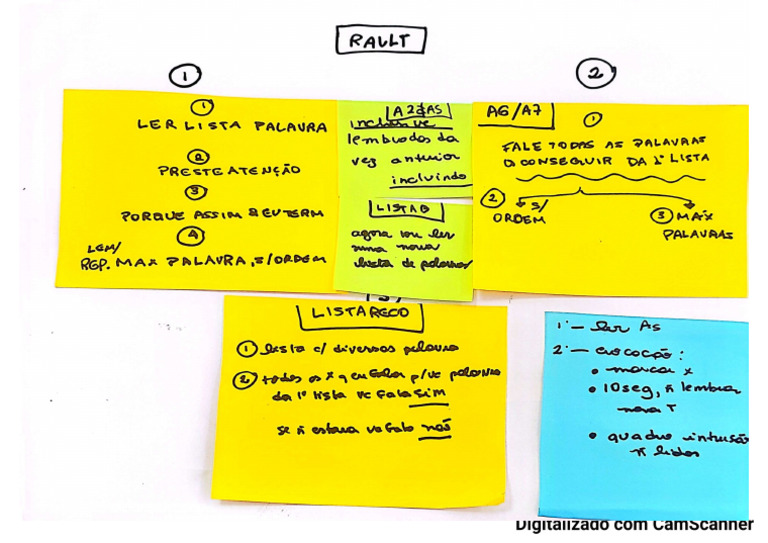 RAVLT
1
2
1
LER LISTA PALAVRA
2
PRESTE ATENÇÃO
3
PORQUE ASSIM Q EU TERM
4
LEM/
REP. MAX PALAVRA, S/ORDEM
A2 A5
inclusive
lembrados da
vez anterior
incluindo
LISTA B
agora vou ler
uma nova
lista de palavras
A6/A7
1
FALE TODAS AS PALAVRAS
Q CONSEGUIR DA 1ª LISTA
2 S/
ORDEM
3 MÁX
PALAVRAS
LISTA RECO
1 lista c/ diversas palavra
2 todas as x q eu falar p/ vc palavra
da 1ª lista vc fala SIM
se ñ estava vc fala não
1º - Ler A5
2º - evocação:
• marcar x
• 10seg, ñ lembrar
nova T
• quadro intrusão
ñ lidos
Digitalizado com CamScanner